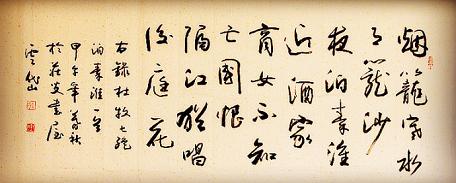 烟籠寒水
月籠沙
夜泊秦淮
近酒家
商女不知
亡國恨
隔江猶唱
後庭花
右録杜牧七絕
泊秦淮一首
甲午年
於莊
書屋